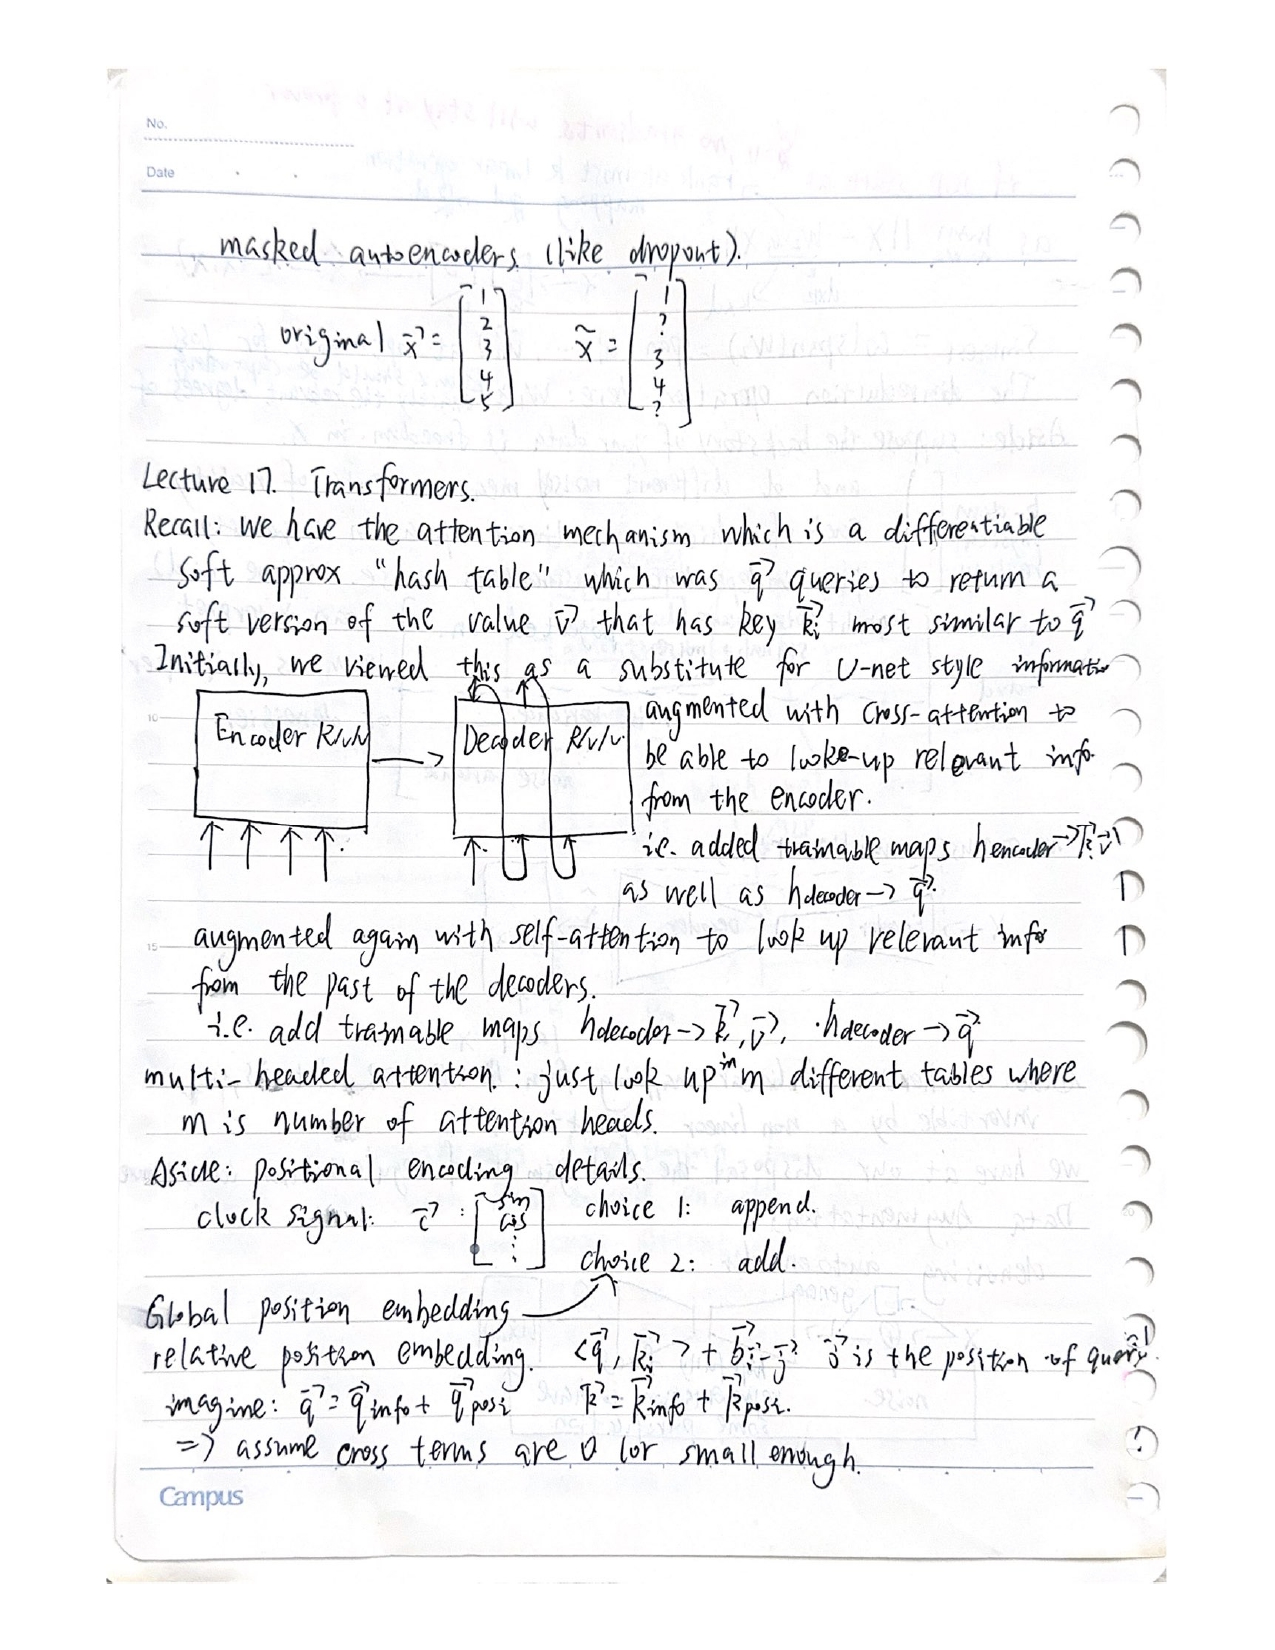 No.
Date
masked autoencoders (like dropout).
original x⃗ = [1 2 3 4 5] x̃ = [1 ? 3 4 ?]
Lecture 17. Transformers.
Recall: we have the attention mechanism which is a differentiable
soft approx "hash table" which was q⃗ queries to return a
soft version of the value v⃗ that has key k⃗ᵢ most similar to q⃗
Initially, we viewed this as a substitute for U-net style informatio
Encoder RNN → Decoder RNN
augmented with cross-attention to
be able to looke-up relevant info
from the encoder.
i.e. added trainable maps hencoder → k⃗, v⃗
as well as hdecoder → q⃗.
augmented again with self-attention to look up relevant info
from the past of the decoders.
i.e. add trainable maps hdecoder → k⃗, v⃗, hdecoder → q⃗
multi-headed attention: just look up in m different tables where
m is number of attention heads.
Aside: positional encoding details.
clock signal: c⃗ : [sin cos ⋮] choice 1: append.
choice 2: add.
Global position embedding
relative position embedding. <q⃗, k⃗ᵢ> + b⃗ᵢ₋ⱼ j⃗ is the position of query.
imagine: q⃗ = q⃗info + q⃗posi k⃗ = k⃗info + k⃗posi.
=> assume cross terms are 0 (or small enough.
Campus
10
15